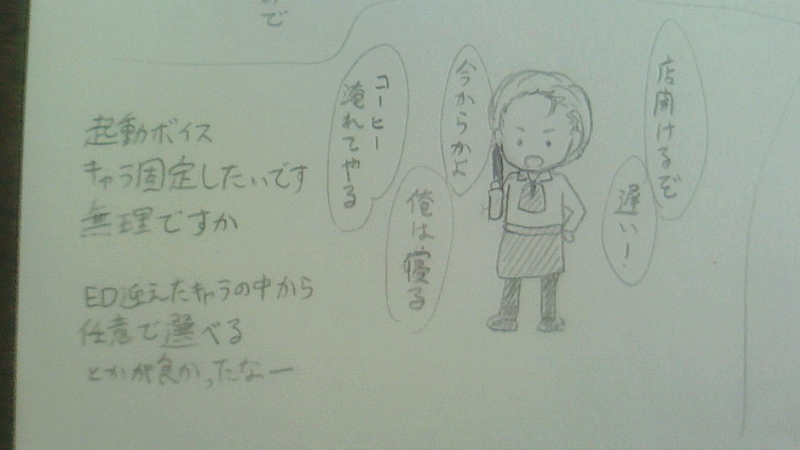 ので
店開けるぞ
遅い!
今からかよ
コーヒー
淹れてやる
俺は寝る
起動ボイス
キャラ固定したいです
無理ですか
ED迎えたキャラの中から
任意で選べる
とかが良かったなー